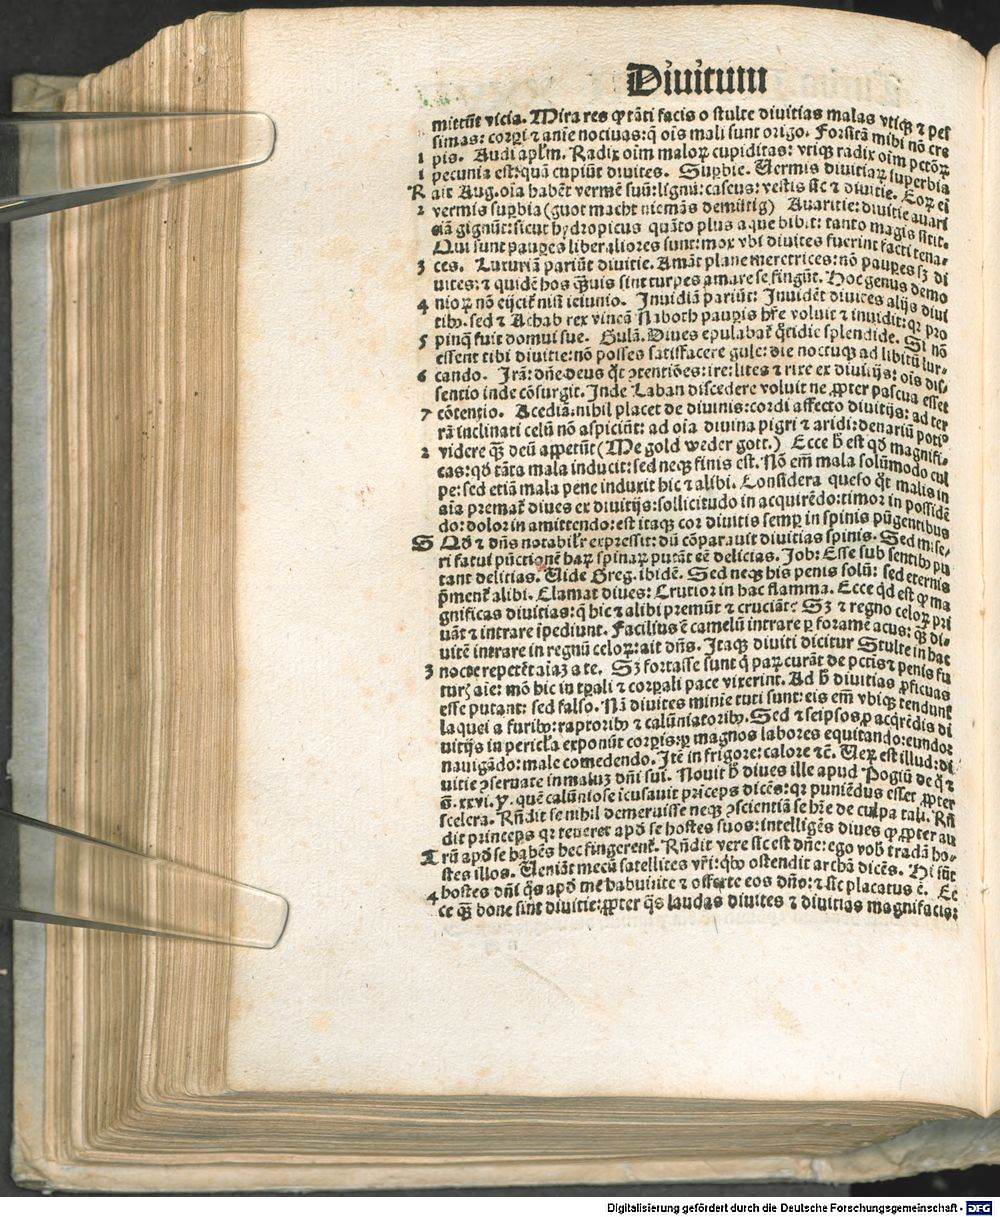 Diuitum
mittũt vicia. Mira res ꝙ tãti facis o stulte diuitias malas vtiqꝫ ⁊ pes
simas: corpi ⁊ anie nociuas: q̃ oĩs mali sunt origo. Forsitã mihi nõ cre
1 pis. Audi aplm̃. Radix oĩm maloꝝ cupiditas: vtiqꝫ radix oĩm pctõꝝ
1 pecunia est: quã cupiũt diuites. Supbie. Uermis diuitiaꝝ supérbia
R ait Aug. oĩa habẽt vermẽ suũ: lignũ: caseus: vestis sic ⁊ diuitie. Eoꝝ eĩ
2 vermis supbia (guot macht niemãs demiitig) Auaritie: diuitie auari
ciã gignũt: sicut hydropicus quãto plus aque bibit: tanto magis sitit.
Qui sunt paupes liberaliores sunt: mox vbi diuites fuerint facti tena-
3 ces. Luxuriã pariũt diuitie. Amãt plane meretrices: nõ paupes sꝫ di
uites: ⁊ quidẽ hos q̃uis sint turpes amare se fingũt. Hoc genus demo
4 nioꝝ nõ eijcit̃ nisi ieiunio. Inuidiã pariũt: Inuidẽt diuites alijs diui
tibꝰ. sed ⁊ Achab rex vineã Naboth paupis hr̃e voluit ⁊ inuidit: qꝛ pro
5 pinq̃ fuit domui sue. Gulã. Diues epulabat̃ q̃tidie splendide. Si nõ
essent tibi diuitie: nõ posses satisfacere gule: die noctuqꝫ ad libitũ lur-
6 cando. Irã: dñe deus q̃t ɔtentiões: ire: lites ⁊ rixe ex diuitijs: oĩs dis-
sentio inde cõsurgit. Inde Laban discedere voluit ne ꝓpter pascua esset
7 cõtentio. Acediã: nihil placet de diuinis: cordi affecto diuitijs: ad ter
rã inclinati celũ nõ aspiciũt: ad oĩa diuina pigri ⁊ aridi: denariũ potiꝰ
2 videre q̃ꝫ deũ appetũt (Me gold weder gott.) Ecce h̃ est qđ magnifi-
cas: qđ tãta mala inducit: sed neqꝫ finis est. Nõ em̃ mala solũmodo cul
pe: sed etiã mala pene induxit hic ⁊ alibi. Considera queso q̃t malis in
aĩa premat̃ diues ex diuitijs: sollicitudo in acquirẽdo: timor in possidẽ
do: dolor in amittendo: est itaqꝫ cor diuitis semp in spinis pũgentibus
S Qđ ⁊ dñs notabilr̃ expressit: dũ cõparauit diuitias spinis. Sed mise-
ri fatui pũctionẽ haꝝ spinaꝝ putãt eẽ delicias. Job: Esse sub sentibꝰ pu
tant delitias. Uide Greg. ibidẽ. Sed neqꝫ his penis solũ: sed eternis
p̃ment̃ alibi. Clamat diues: Crutior in hac flamma. Ecce qđ est ꝙ ma
gnificas diuitias: q̃ hic ⁊ alibi premũt ⁊ cruciãt: Sꝫ ⁊ regno celoꝝ pri
uãt ⁊ intrare ĩpediunt. Facilius ẽ camelũ intrare p foramẽ acus: q̃ꝫ di-
uitẽ intrare in regnũ celoꝝ: ait dñs. Itaqꝫ diuiti dicitur Stulte in hac
3 nocte repetẽt aĩaꝫ a te. Sꝫ fortasse sunt q̃ paꝝ curãt de pctĩs ⁊ penis fu
turꝭ aĩe: mõ hic in tp̃ali ⁊ corpali pace vixerint. Ad h̃ diuitias ꝓficuas
esse putant: sed falso. Nã diuites minĩe tuti sunt: eis em̃ vbiqꝫ tendunt̃
laquei a furibꝰ: raptoribꝰ ⁊ calũniatoribꝰ. Sed ⁊ seipsos p acq̃rẽdis di
uitijs in pericl̃a exponũt corpis: p magnos labores equitando: eundo:
nauigãdo: male comedendo. Itẽ in frigore: calore ⁊c̃. Ueꝝ est illud: di
uitie ɔseruate in maluꝫ dñi sui. Nouit h̃ diues ille apud Pogiũ de q̃ ⁊
s̃. xxvi. y. quẽ calũniose ĩcusauit prĩceps dicẽs: qꝛ puniẽdus esset ꝓpter
scelera. Rñdit se nihil demeruisse neqꝫ ɔscientiã se hr̃e de culpa tali. Rñ
dit princeps qꝛ teneret apđ se hostes suos: intelligẽs diues ꝙ ꝓpter au
T rũ apđ se habẽs hec fingerent̃. Rñdit vere sic est dñe: ego vob̃ tradã ho-
stes illos. Ueniãt mecũ satellites vr̃i: qbꝰ ostendit archã dicẽs. Hi sũt
4 hostes dñi q̃s apđ me habuistis ⁊ offerte eos dño: ⁊ sic placatus ẽ. Ec
ce q̃ꝫ bone sint diuitie: ꝓpter q̃s laudas diuites ⁊ diuitias magnifacis:
Digitalisierung gefördert durch die Deutsche Forschungsgemeinschaft - DFG